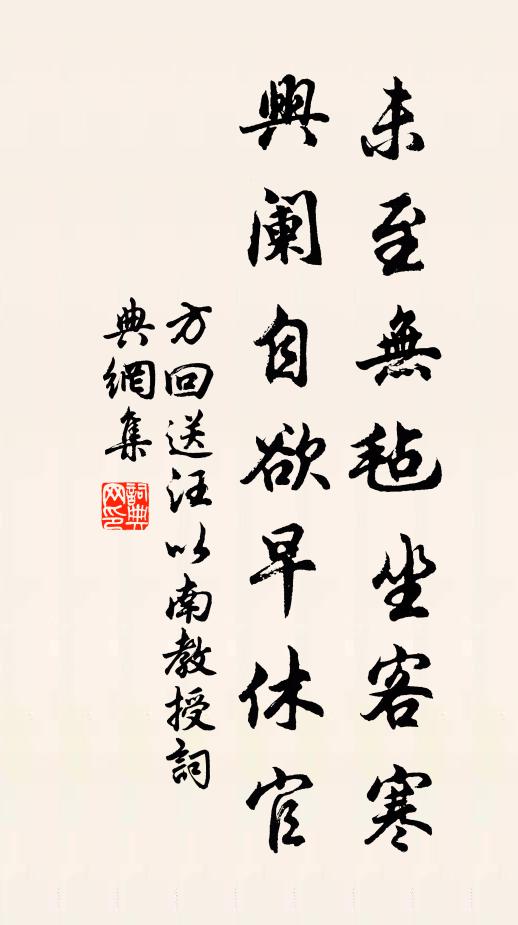 未至無毡坐客寒
興阑自欲早休官
方回送汪以南教授詞
典網集
詞典网印